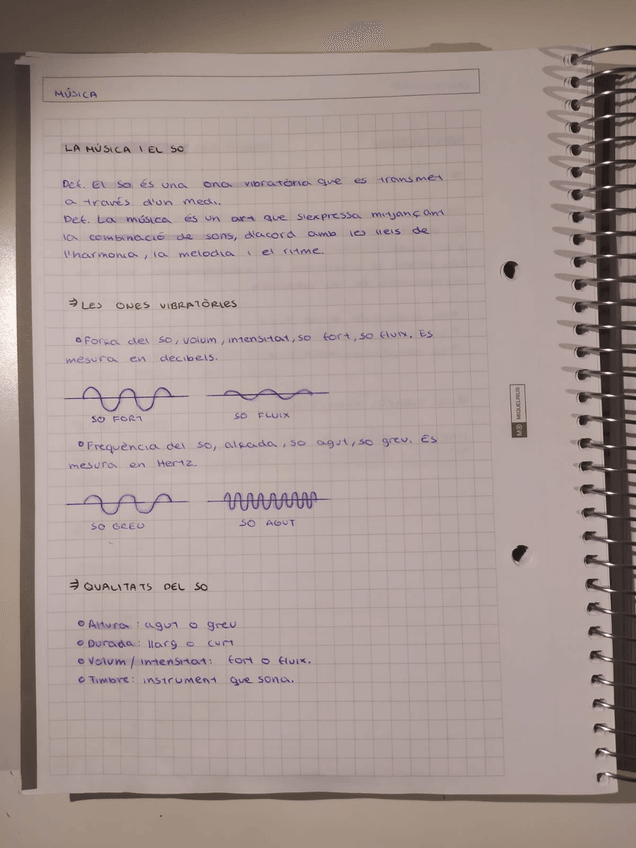 MÚSICA
LA MÚSICA I EL SO
Def. El so és una ona vibratòria que es transmet
a través d'un medi.
Def. La música és un art que s'expressa mitjançant
la combinació de sons, d'acord amb les lleis de
l'harmonia, la melodia i el ritme.
⇒ LES ONES VIBRATÒRIES
• Força del so, volum, intensitat, so fort, so fluix. Es
mesura en decibels.
SO FORT SO FLUIX
• Freqüència del so, alçada, so agut, so greu. Es
mesura en Hertz.
SO GREU SO AGUT
⇒ QUALITATS DEL SO
• Altura: agut o greu
• Durada: llarg o curt
• Volum / intensitat: fort o fluix.
• Timbre: instrument que sona.
MIQUELRIUS